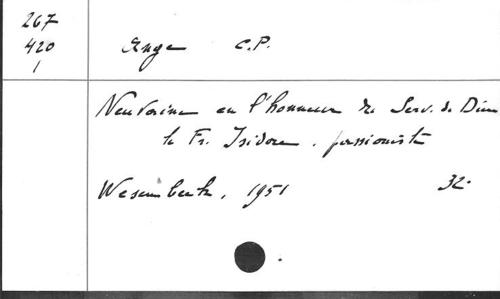 267
420
1
Ange C.P.
Neuvaine en l'honneur du Serv. de Dieu
le Fr. Isidore, passioniste
Wesembeek, 1951 32.